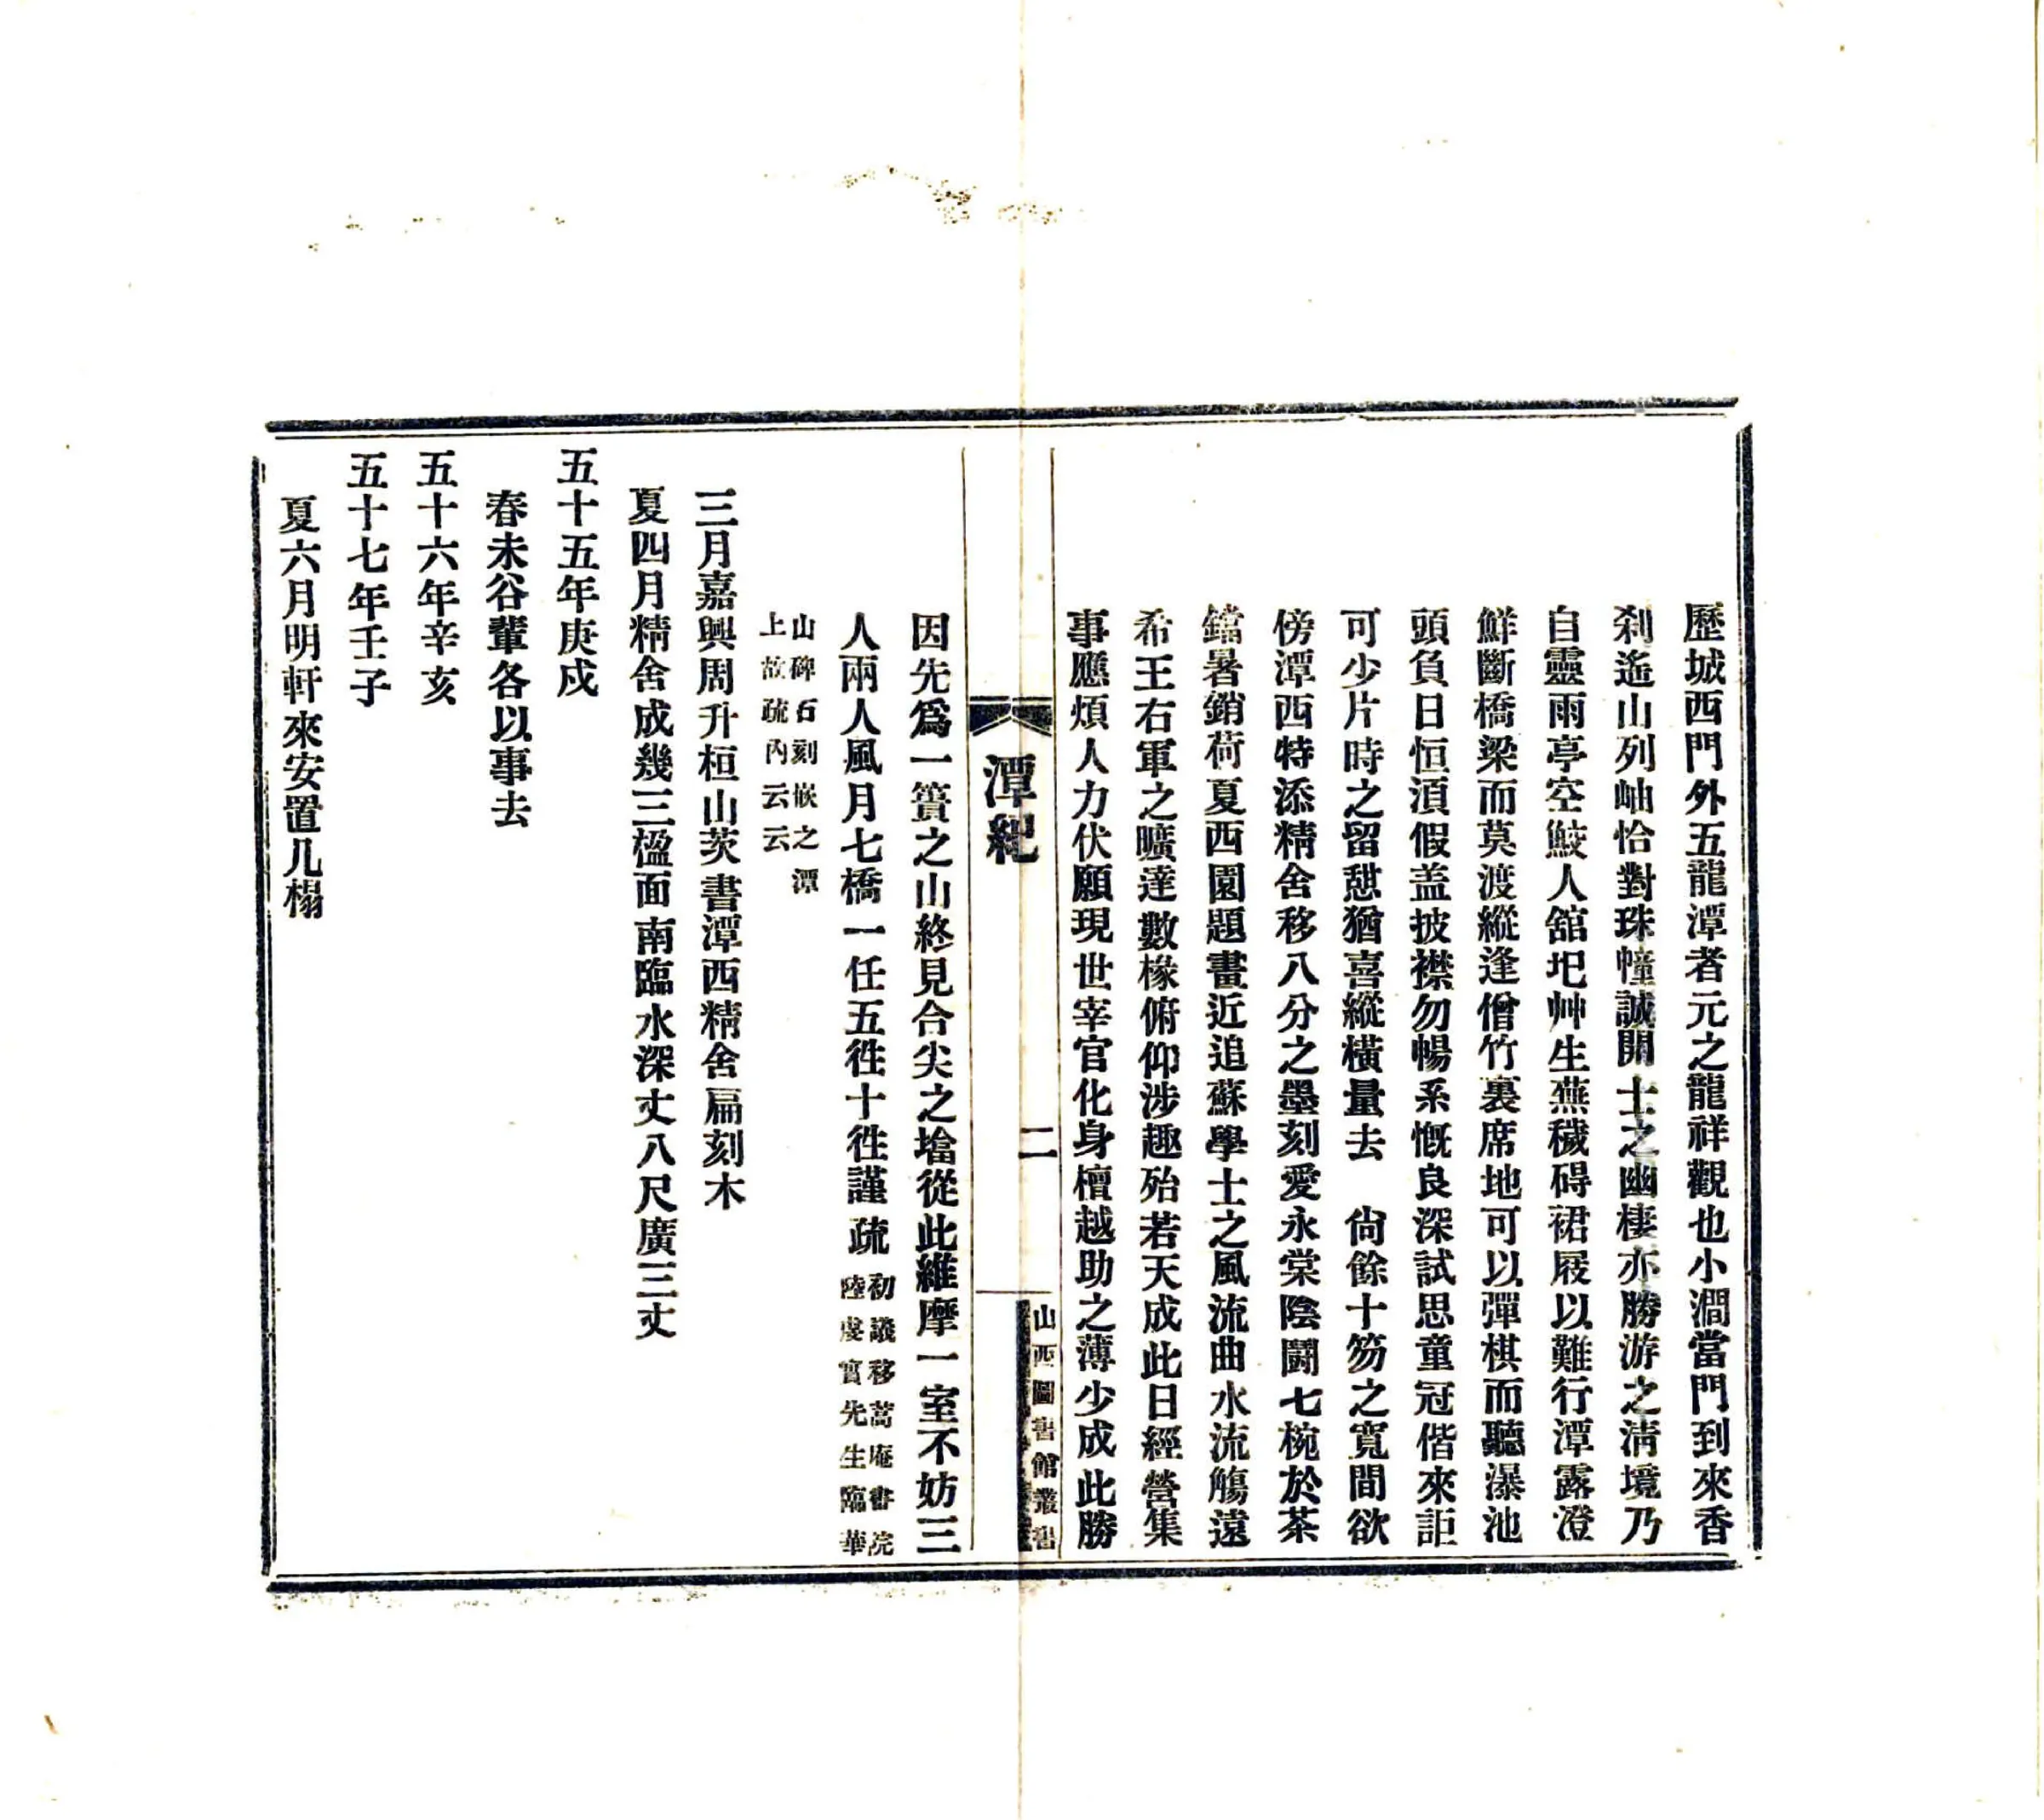 歷城西門外五龍潭者元之龍祥觀也小澗當門到來香
刹遙山列岫恰對珠幢誠開士之幽棲亦勝游之淸境乃
自靈雨亭空鮫人舘圯艸生蕪穢碍裙屐以難行潭露澄
鮮斷橋梁而莫渡縱逢僧竹裏席地可以彈棋而聽瀑池
頭負日恒須假盖披襟勿暢系慨良深試思童冠偕來詎
可少片時之留憇猶喜縱橫量去　尙餘十笏之寬間欲
傍潭西特添精舍移八分之墨刻愛永棠陰鬭七椀於茶
鐺暑銷荷夏西園題畫近追蘇學士之風流曲水流觴遠
希王右軍之曠達數椽俯仰涉趣殆若天成此日經營集
事應煩人力伏願現世宰官化身檀越助之薄少成此勝
潭紀
二
山西圖書館叢書
因先爲一簣之山終見合尖之墖從此維摩一室不妨三
人兩人風月七橋一任五徃十徃謹疏
初議移蒿庵書院
陸虔實先生臨華
山碑石刻嵌之潭
上故疏內云云
三月嘉興周升桓山茨書潭西精舍扁刻木
夏四月精舍成幾三楹面南臨水深丈八尺廣三丈
五十五年庚戍
春未谷輩各以事去
五十六年辛亥
五十七年壬子
夏六月明軒來安置几榻